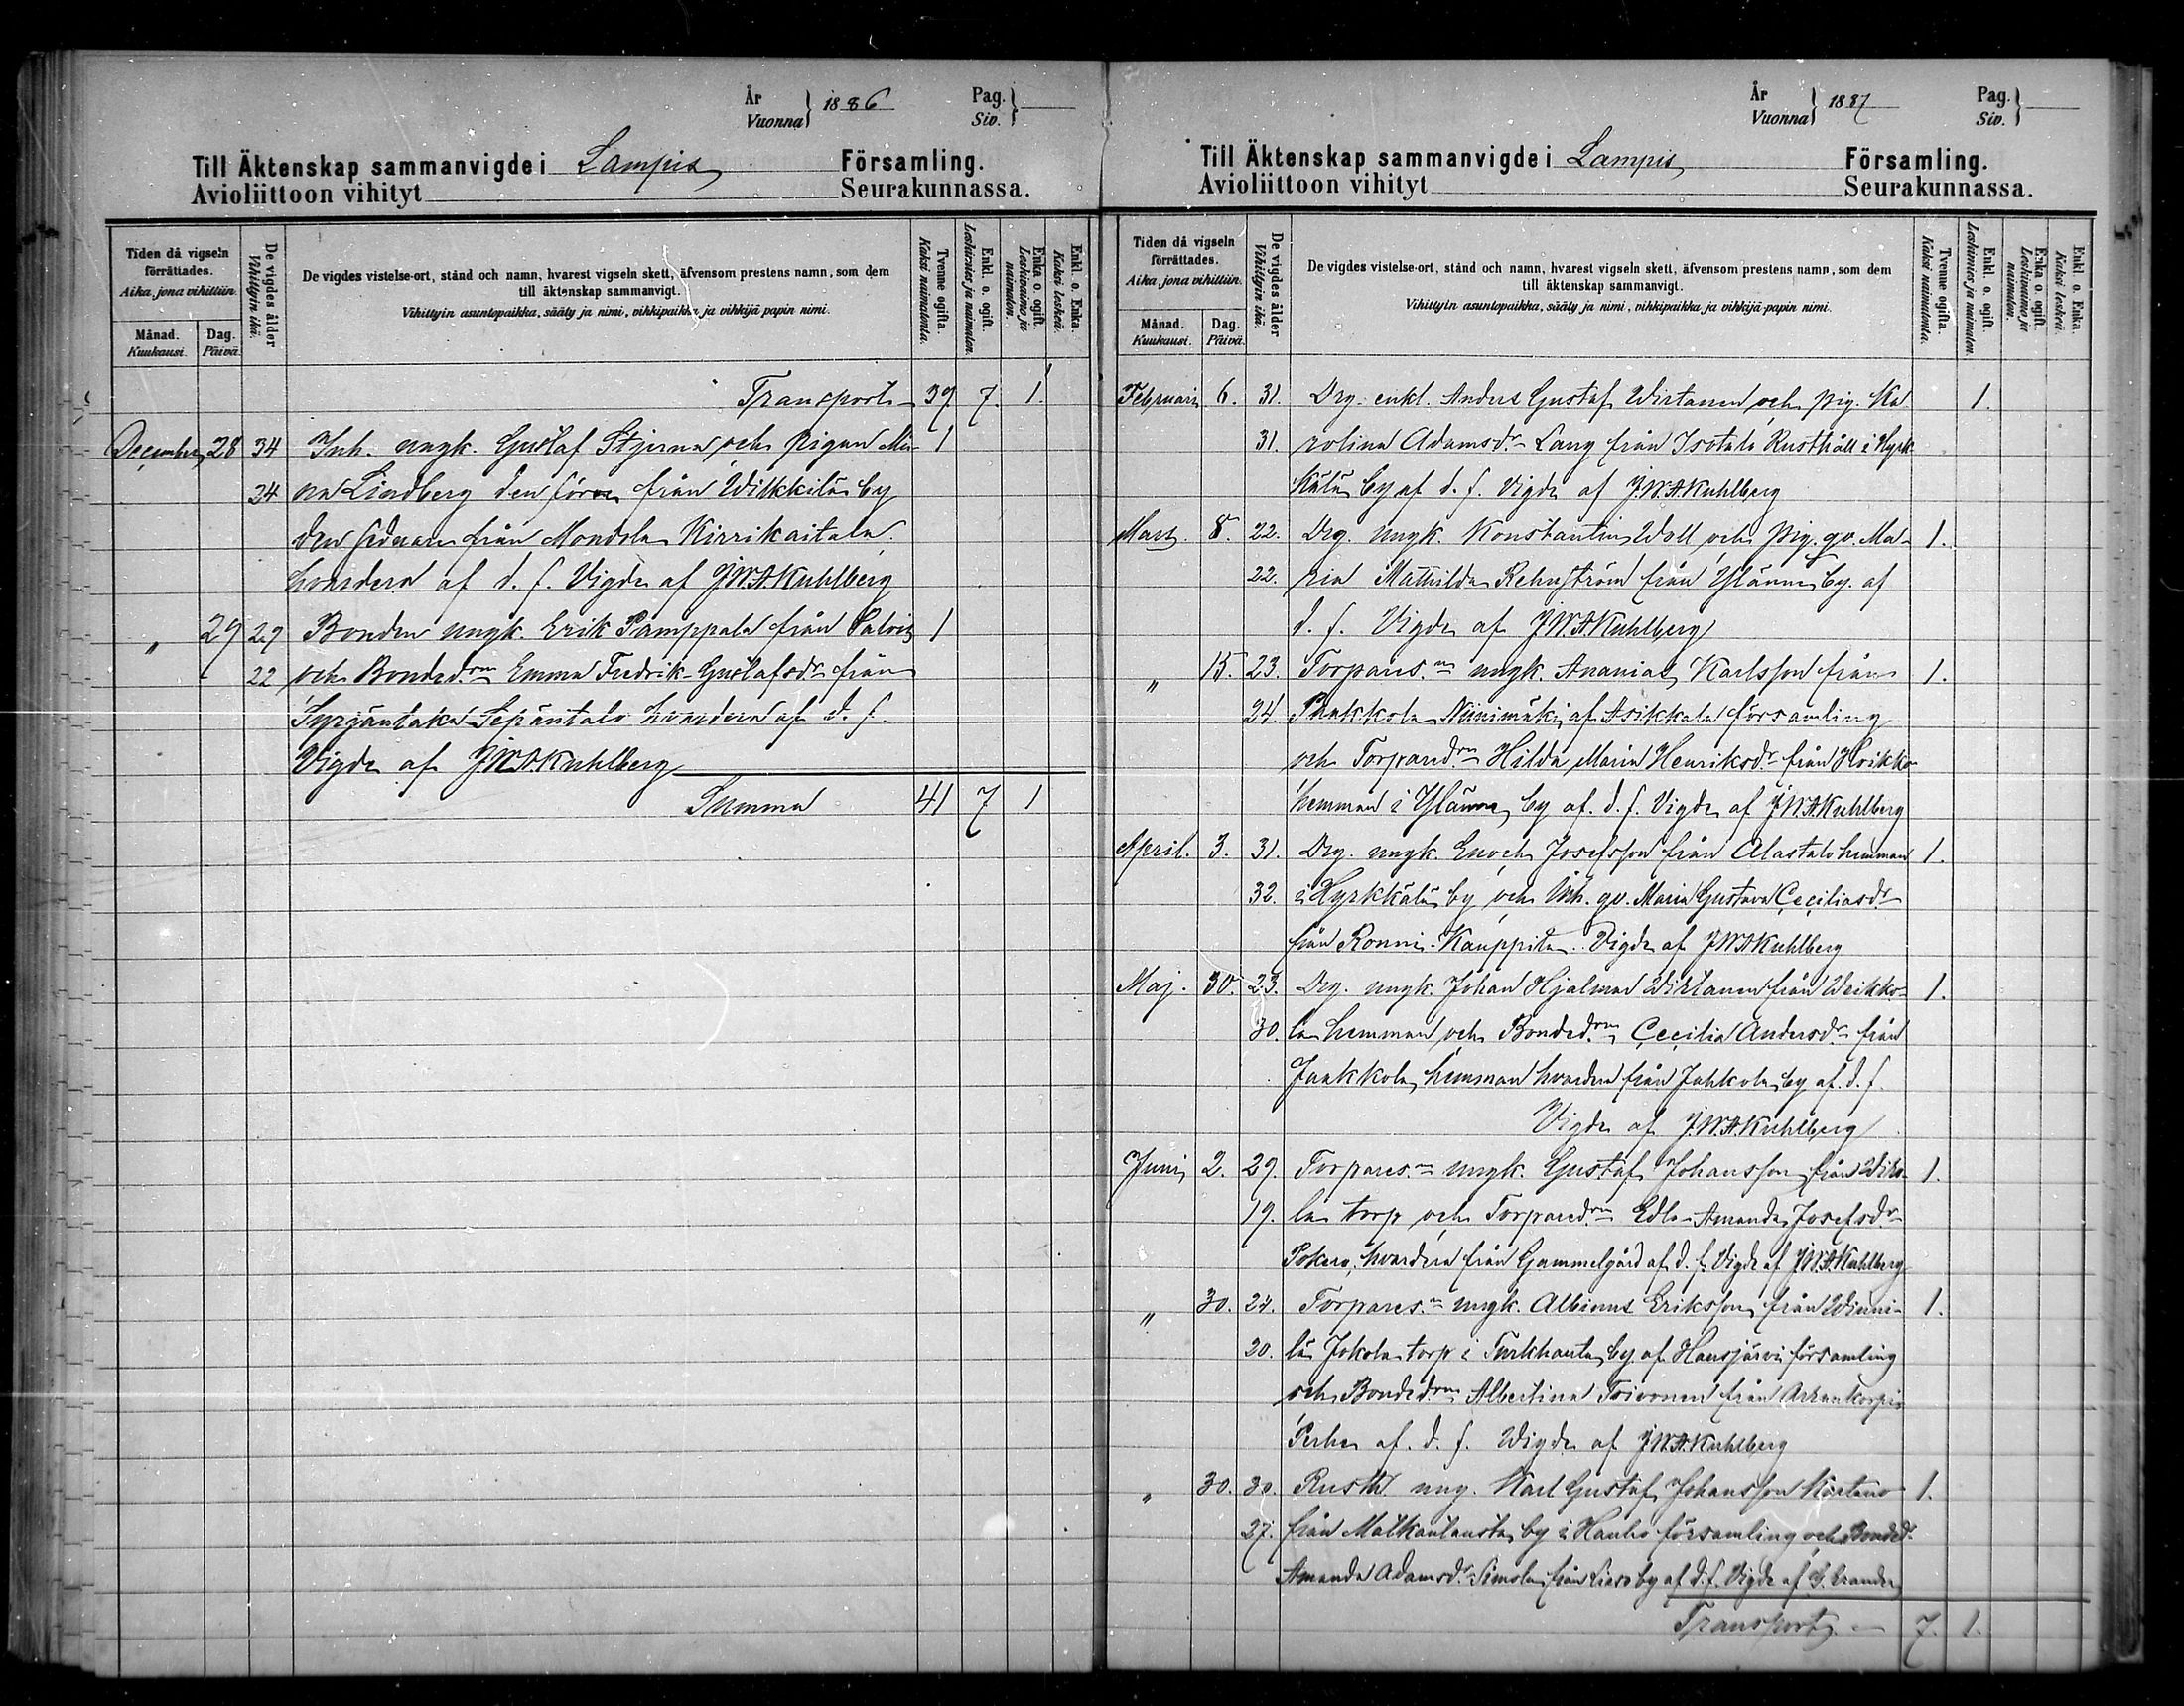 År
Vuonna } 1886
Pag.
Siv. }
Till Äktenskap sammanvigde i Lampis Församling.
Avioliittoon vihityt Seurakunnassa.
Tiden då vigseln förrättades.
Aika, jona vihittiin.
Månad.
Kuukausi.
Dag.
Päivä.
De vigdes ålder
Vihittyin ikä.
De vigdes vistelse-ort, stånd och namn, hvarest vigseln skett, äfvensom prestens namn, som dem
till äktenskap sammanvigt.
Vihittyin asuntopaikka, sääty ja nimi, vihkipaikka ja vihkijä papin nimi.
Tvenne ogifta.
Kaksi naimatonta.
Enkl. o. ogift.
Leskimies ja naimaton.
Enka o. ogift.
Leskivaimo ja naimaton.
Enkl. o. Enka.
Kaksi leskeä.
Transport 39 7. 1.
December 28 34 Inh. ungk. Gustaf Stjerna och pigan Mi- 1
24 na Lindberg den förra från Wilkkilä by
den sednare från Mondola Kirrikaitala
hvardera af d. f. Vigde af J.W.A.Kuhlberg
" 29 29 Bonden ungk. Erik Pamppala från Salois 1
22 och Bonded:rn Emma Fredrik. Gustafsdr från
Syrjäntaka Sepäntalo hvardera af d. f.
Vigde af J.W.A.Kuhlberg
Summa 41 7 1
År
Vuonna } 1887
Pag.
Siv. }
Till Äktenskap sammanvigde i Lampis Församling.
Avioliittoon vihityt Seurakunnassa.
Tiden då vigseln förrättades.
Aika, jona vihittiin.
Månad.
Kuukausi.
Dag.
Päivä.
De vigdes ålder
Vihittyin ikä.
De vigdes vistelse-ort, stånd och namn, hvarest vigseln skett, äfvensom prestens namn, som dem
till äktenskap sammanvigt.
Vihittyin asuntopaikka, sääty ja nimi, vihkipaikka ja vihkijä papin nimi.
Tvenne ogifta.
Kaksi naimatonta.
Enkl. o. ogift.
Leskimies ja naimaton.
Enka o. ogift.
Leskivaimo ja naimaton.
Enkl. o. Enka.
Kaksi leskeä.
Februari 6. 31. Drg. enkl. Anders Gustaf Wirtanen och pig. Ka 1.
31. rolina Adamsdr Lang från Isotalo Rusthåll i Hyrk-
kälä by af d. f. Vigde af J.W.A.Kuhlberg
Mars. 8. 22. Drg. ungk. Konstantin Wall och pig. qv. Ma- 1.
22. ria Mathilda Rehnström från Ylänne by. af
d. f. Vigde af J.W.A.Kuhlberg
" 15. 23. Torpares.n ungk. Ananias Karlsson från 1.
24. Paakkola Niinimäki af Asikkala församling
och Torpared:rn Hilda Maria Henriksdr från Hoikko
hemman i Ylänne by af. d. f. Vigde af J.W.A.Kuhlberg
April. 3. 31. Drg. ungk. Enoch Josefsson från Alastalo hemman 1.
32. i Hyrkkälä by och Inh. qv. Maria Gustava Ceciliasdr
från Ronni-Kauppila. Vigde af J.W.A.Kuhlberg
Maj. 30. 23. Drg. ungk. Johan Hjalmar Wirtanen från Weikko- 1.
30. la hemman och Bonded:rn Cecilia Andersdr från
Jaakkola hemman hvardera från Jahkola by af. d. f.
Vigde af J.W.A.Kuhlberg
Juni 2. 29. Torpares.n ungk. Gustaf Johansson från Wiro- 1.
19. la torp och Torpared:rn Edla Amanda Josefsdr
Pokero, hvardera från Gammelgård af d. f. Vigde af J.W.A.Kuhlberg
" 30. 24. Torpares.n ungk. Albinus Eriksson från Winni- 1.
20. lä Jokola torp i Turkhauta by af Hausjärvi församling
och Bonded:rn Albertina Toivonen från Arrankorpi
Perhe af. d. f. Wigde af J.W.A.Kuhlberg
" 30. 30. Rusth. ung. Karl Gustaf Johansson Kartano 1.
27. från Matkantausta by i Hauho församling och Bonded.
Amanda Adamsdr Simola från Lieso by af d. f. Vigde af
Transport 7. 1.